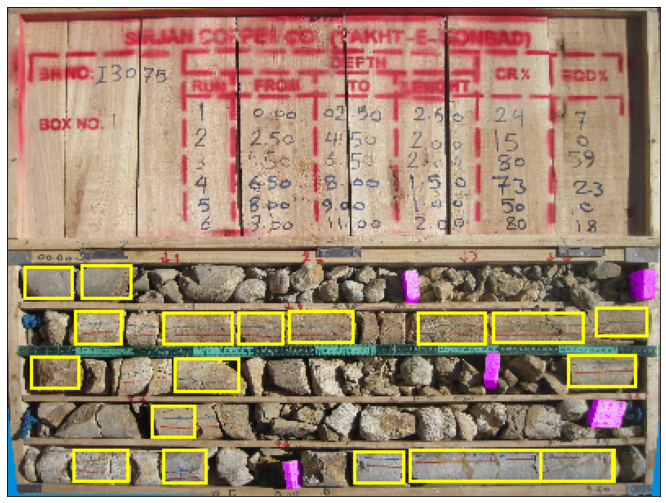 SIRJAN COPPER CO. (TAKHT-E-GONBAD)
DEPTH
BH NO: I3075 RUN FROM TO LENGHT CR% RQD%
BOX NO. 1
1 0.00 02.50 2.50 29 7
2 2.50 4.50 2.00 15 0
3 4.50 6.50 2.00 80 59
4 6.50 8.00 1.50 73 23
5 8.00 9.00 1.00 50 0
6 9.00 11.00 2.00 80 18